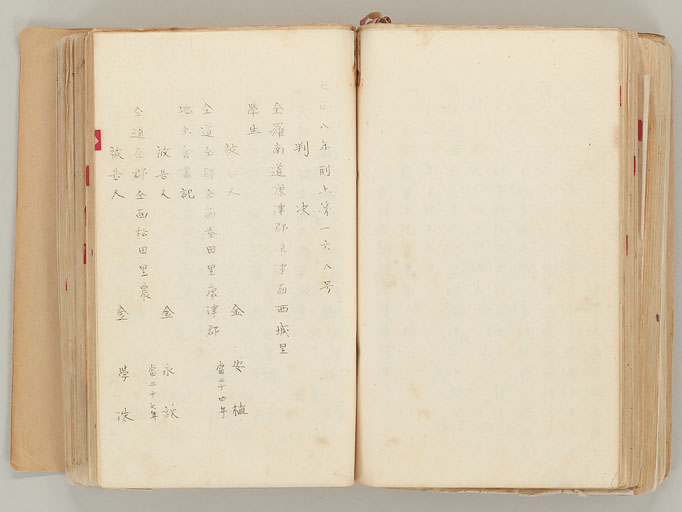 大正八年刑上第一六八号
判決
全羅南道康津郡康津面西城里
學生
被告人 金安植
當二十四年
仝道仝郡仝面松田里康津郡
地主會書記
被告人 金永
當二十七年
仝道仝郡仝面松田里農
被告人 金學洙